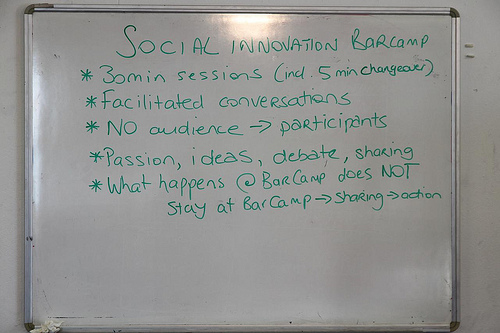 SOCIAL INNOVATION BARCAMP
* 30min sessions (incl. 5 min changeover)
* Facilitated conversations
* NO audience → participants
* Passion, ideas, debate, sharing
* What happens @ BarCamp does NOT
stay at BarCamp → sharing → action